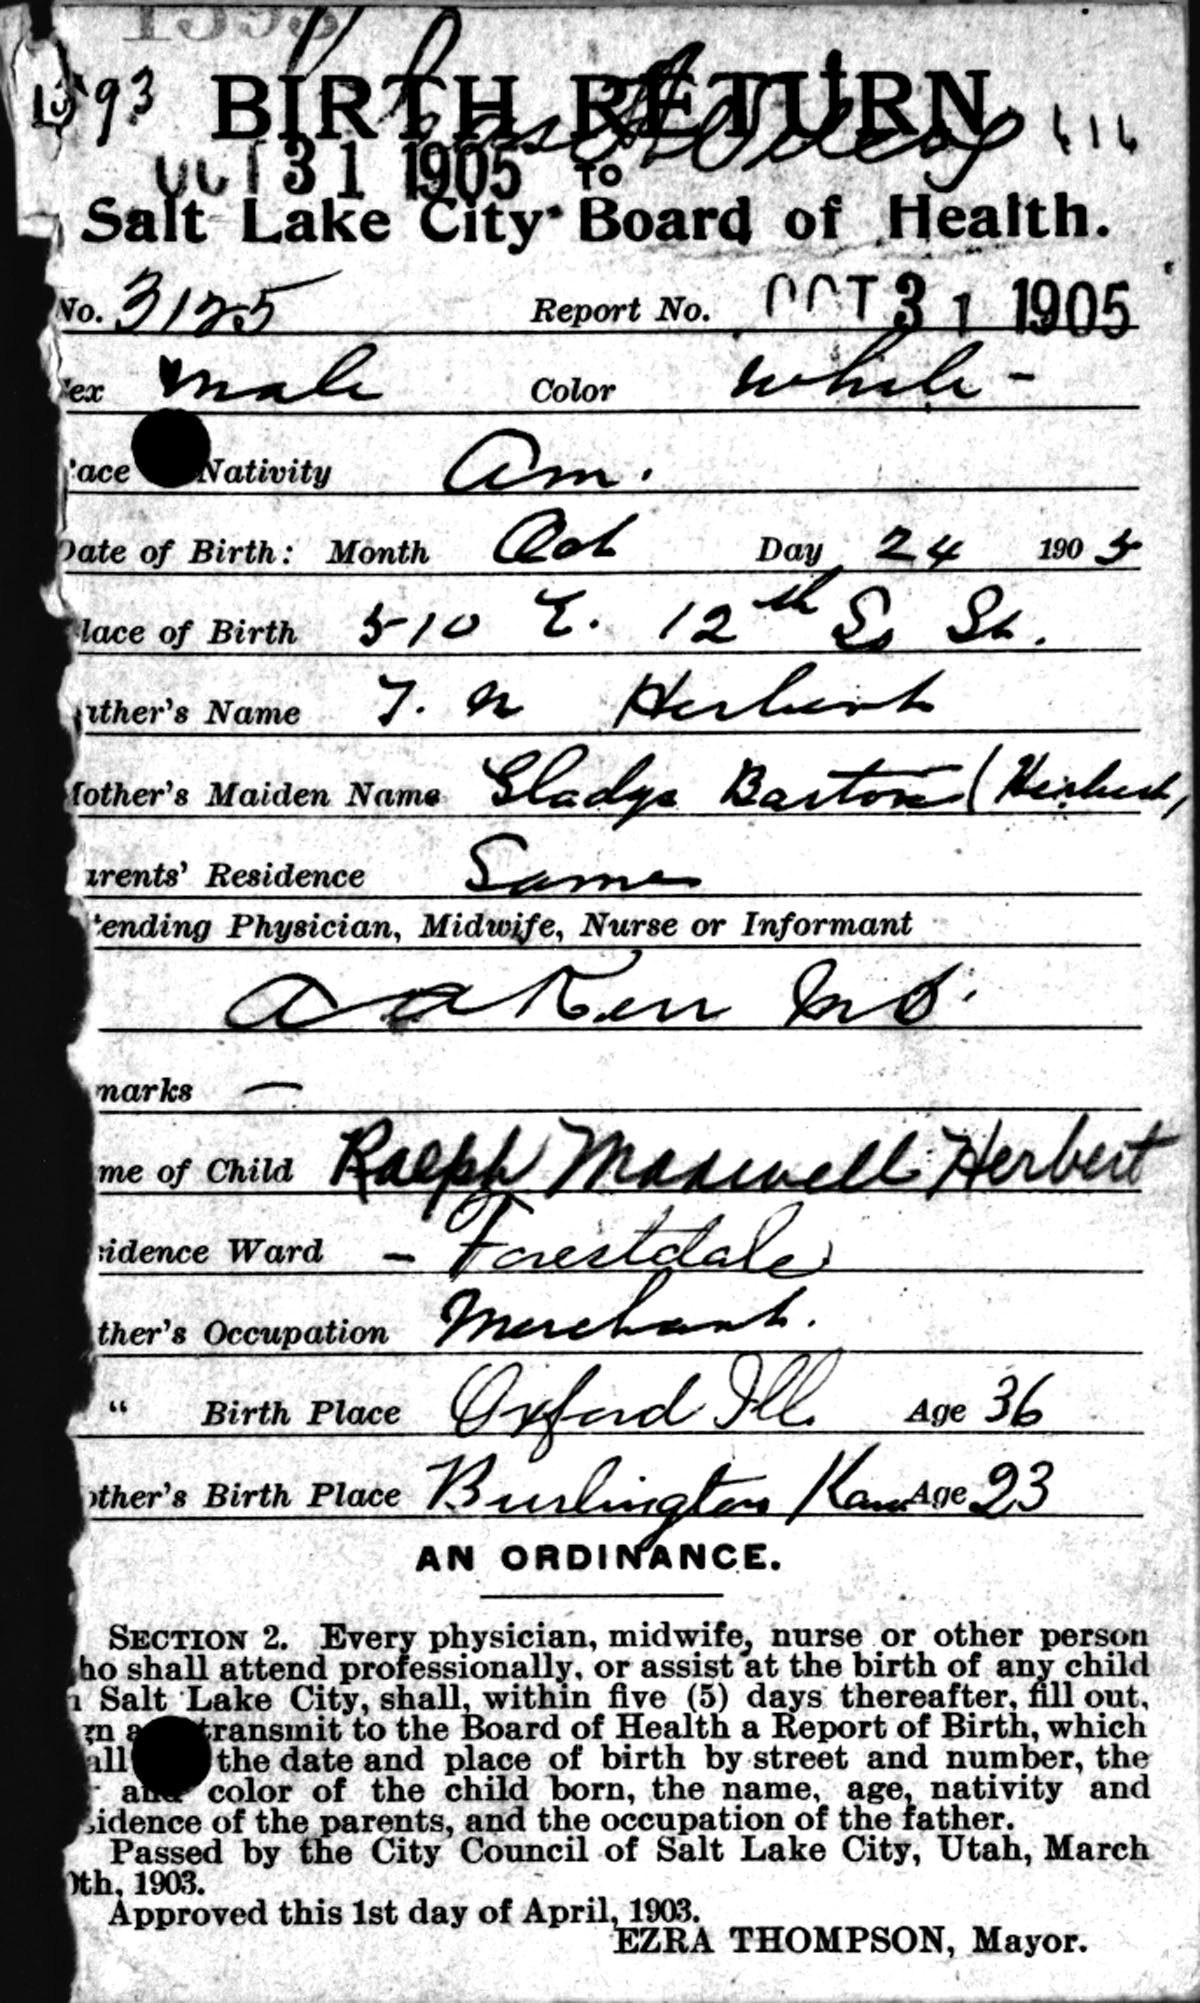 93 BIRTH RETURN
OCT 31 1905 TO
Salt Lake City Board of Health.
No. 3125 Report No. OCT 31 1905
ex male Color white -
ace Nativity Am.
Date of Birth: Month Oct Day 24 1905
lace of Birth 510 E. 12th So St.
ather's Name T. N Herbert
Mother's Maiden Name Gladys Barton (Herbert)
arents' Residence Same
tending Physician, Midwife, Nurse or Informant
A A Kerr M D.
marks —
me of Child Ralph Maxwell Herbert
idence Ward - Forestdale
ther's Occupation Merchant.
" Birth Place Oxford Ill. Age 36
other's Birth Place Burlington Kans Age 23
AN ORDINANCE.
SECTION 2. Every physician, midwife, nurse or other person
ho shall attend professionally, or assist at the birth of any child
n Salt Lake City, shall, within five (5) days thereafter, fill out,
gn a transmit to the Board of Health a Report of Birth, which
all the date and place of birth by street and number, the
and color of the child born, the name, age, nativity and
sidence of the parents, and the occupation of the father.
Passed by the City Council of Salt Lake City, Utah, March
0th, 1903.
Approved this 1st day of April, 1903.
EZRA THOMPSON, Mayor.